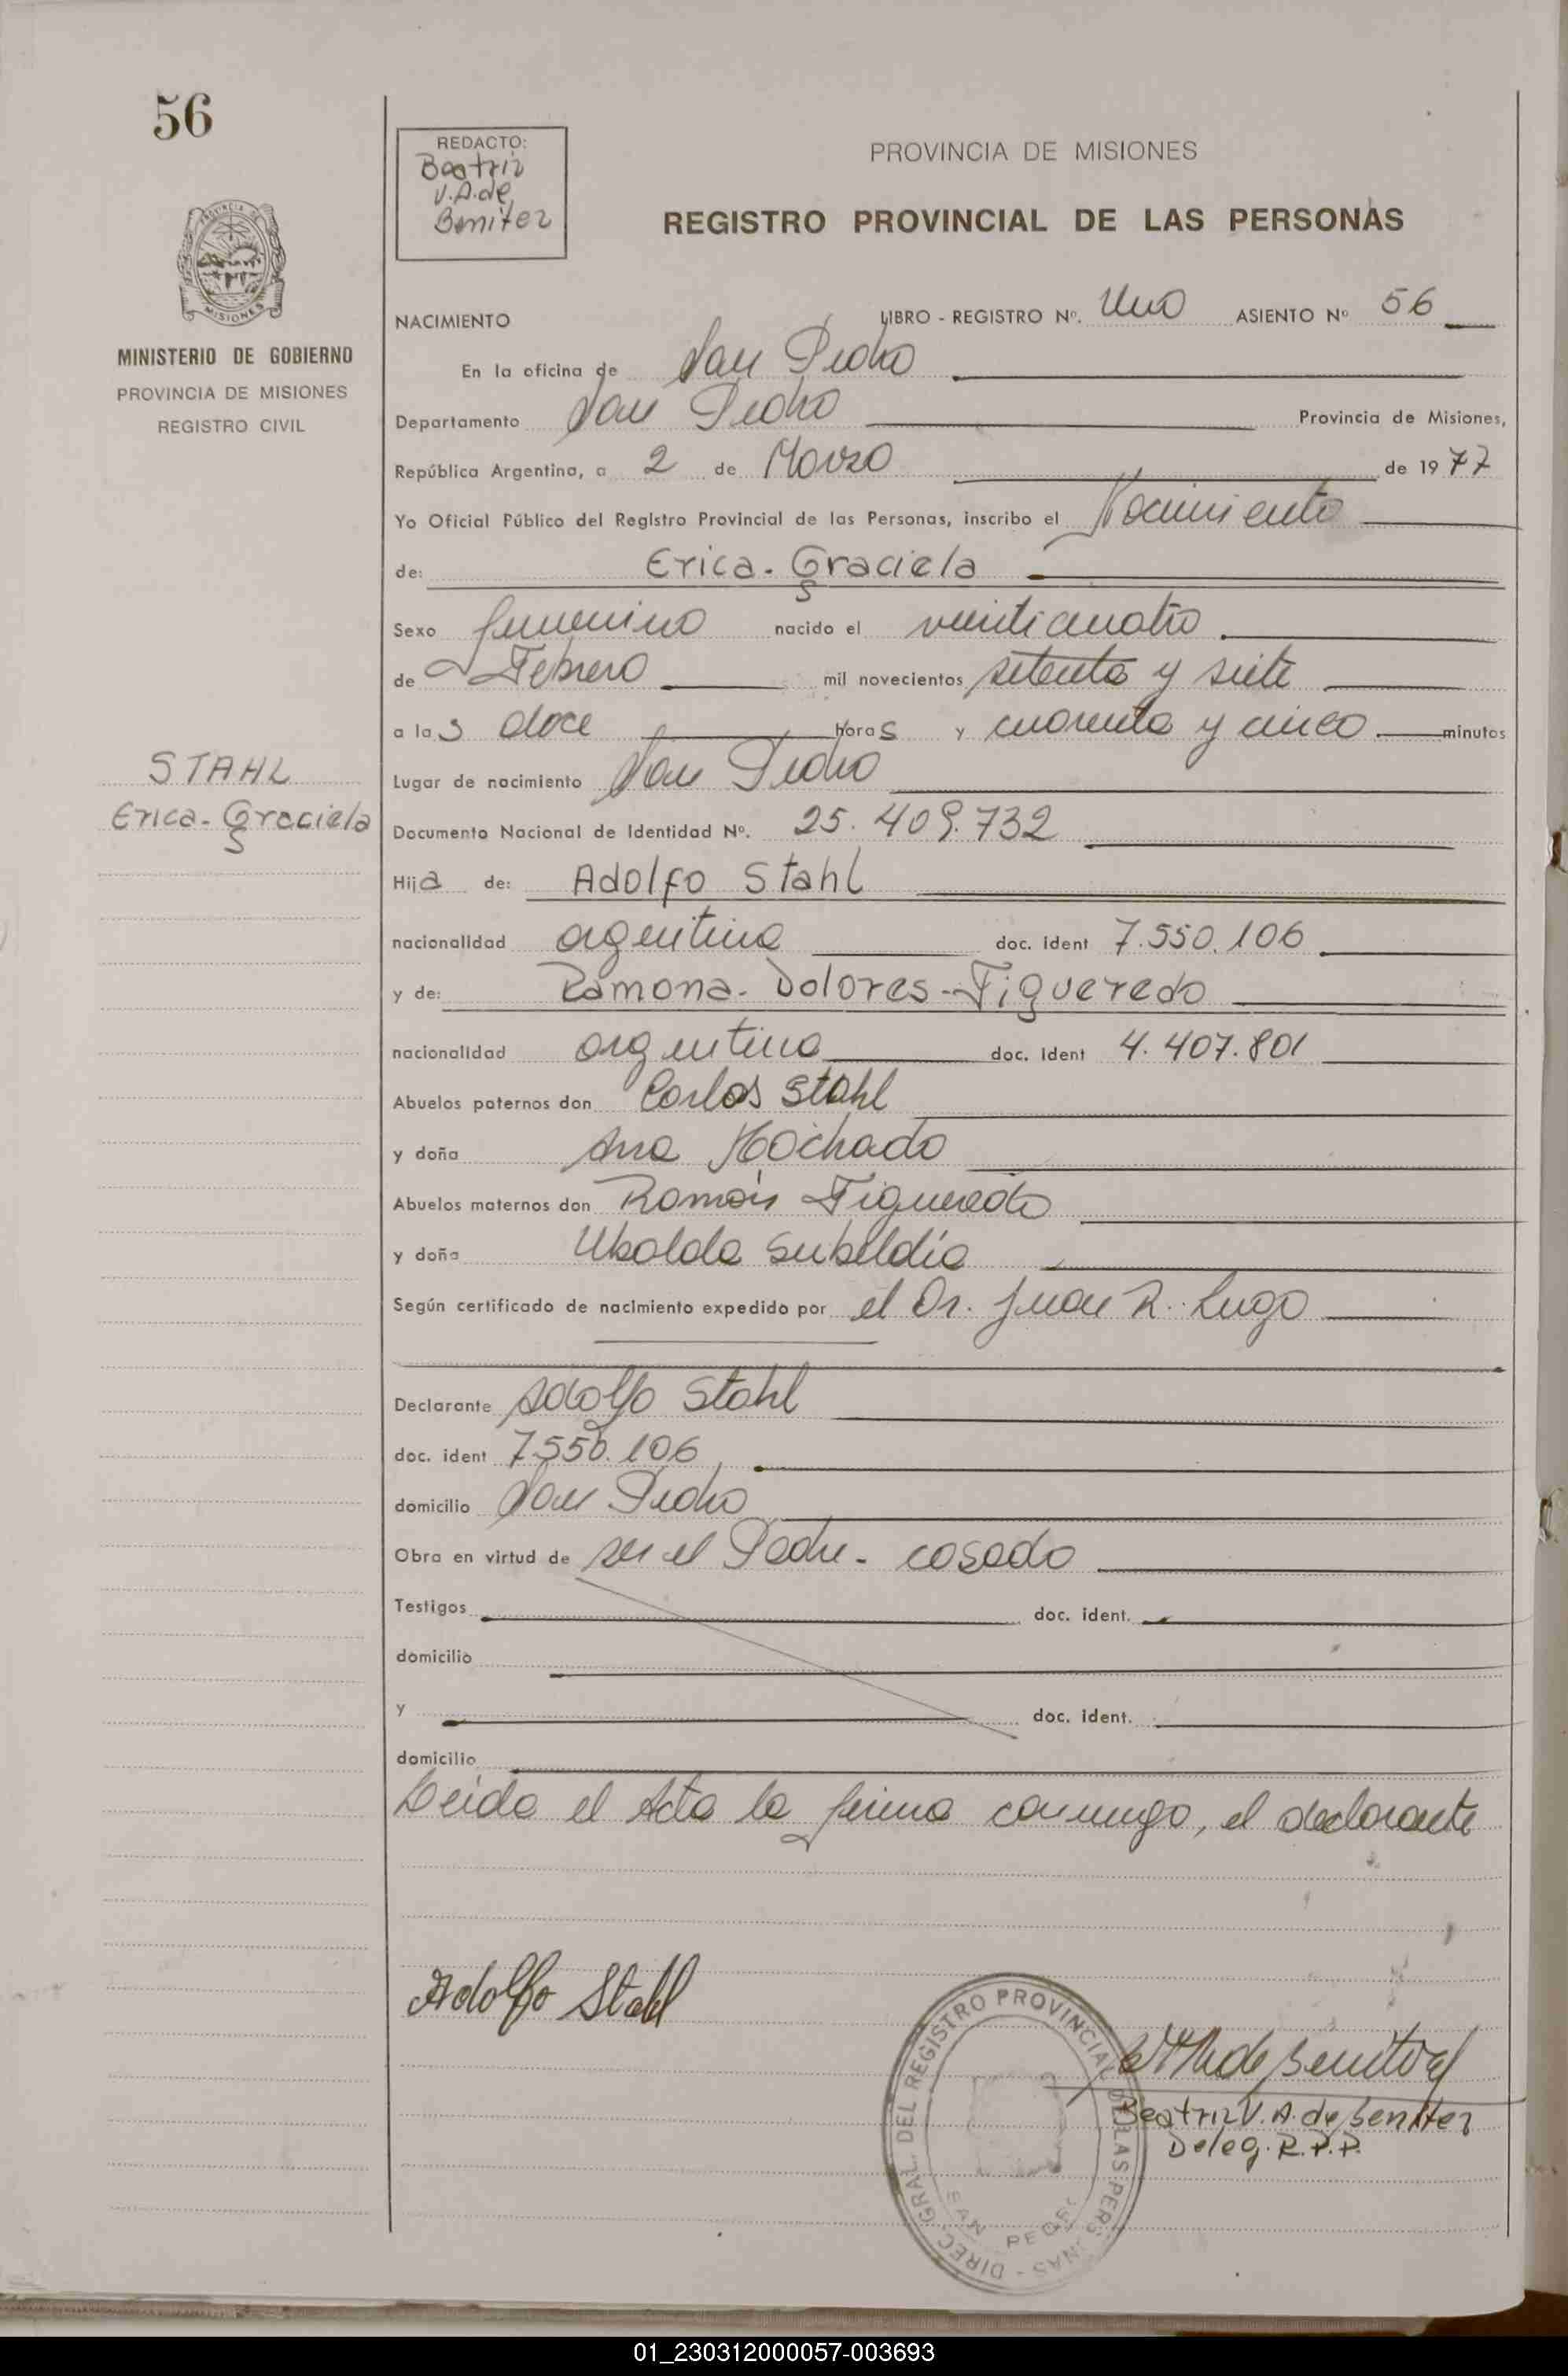 56
REDACTO:
Beatriz
V.A.de
Benitez
PROVINCIA DE MISIONES
REGISTRO PROVINCIAL DE LAS PERSONAS
PROVINCIA DE
MISIONES
MINISTERIO DE GOBIERNO
PROVINCIA DE MISIONES
REGISTRO CIVIL
NACIMIENTO LIBRO - REGISTRO Nº. Uno ASIENTO Nº 56
En la oficina de San Pedro
Departamento San Pedro Provincia de Misiones,
República Argentina, a 2 de Marzo de 1977
Yo Oficial Público del Registro Provincial de las Personas, inscribo el Nacimiento
de: Erica-Graciela
Sexo femenino nacido el veinticuatro
de Febrero mil novecientos setenta y siete
a las doce horas y cuarenta y cinco minutos
STAHL
Erica-Graciela
Lugar de nacimiento San Pedro
Documento Nacional de Identidad Nº. 25.409.732
Hija de: Adolfo Stahl
nacionalidad argentina doc. ident 7.550.106
y de: Ramona-Dolores-Figueredo
nacionalidad argentina doc. ident 4.407.801
Abuelos paternos don Carlos Stahl
y doña Ana Machado
Abuelos maternos don Román Figueredo
y doña Ubalda Subeldía
Según certificado de nacimiento expedido por el Dr. Juan R. Lugo
Declarante Adolfo Stahl
doc. ident 7.550.106
domicilio San Pedro
Obra en virtud de ser el Padre- casado
Testigos doc. ident.
domicilio
y doc. ident.
domicilio
Leida el Acta la firma conmigo, el declarante
Adolfo Stahl
DIREC. GRAL. DEL REGISTRO PROVINCIAL DE LAS PERSONAS -
SAN PEDRO
Beatriz V. A. de Benitez
Deleg. R.P.P.
01_230312000057-003693